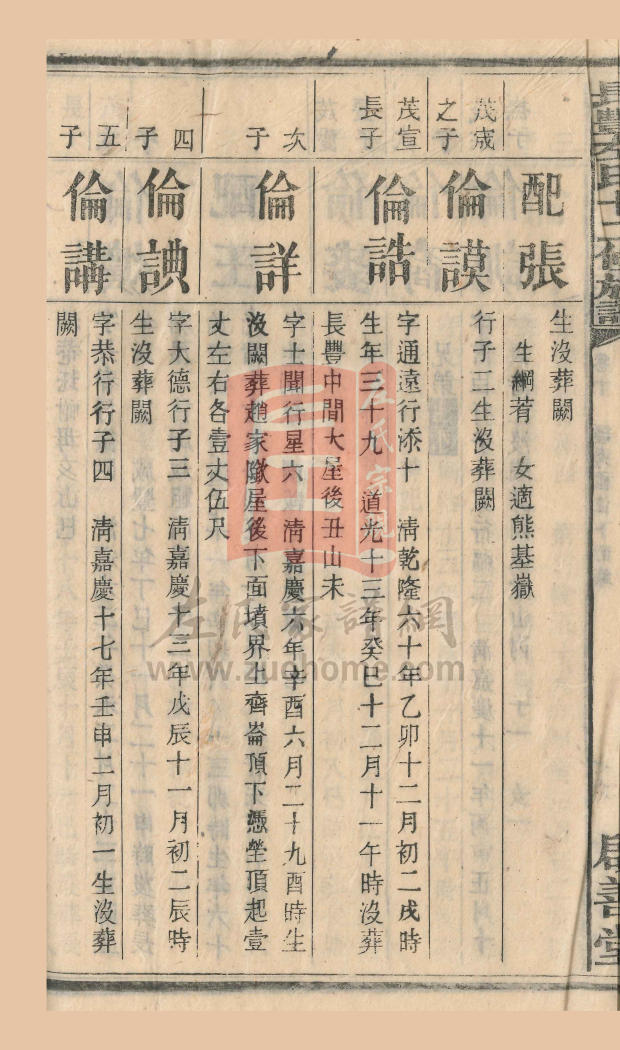 配張
生沒葬闕
生綱著 女適熊基嶽
茂宬之子
倫謨
行子二生沒葬闕
茂宣長子
倫誥
字通遠行添十 清乾隆六十年乙卯十二月初二戌時
生年三十九 道光十三年癸巳十二月十一午時沒葬
長豐中間大屋後丑山未
次子
倫詳
字士聞行星六 清嘉慶六年辛酉六月二十九酉時生
沒闕葬趙家隊屋後下面墳界上齊崙頂下憑塋頂起壹
丈左右各壹丈伍尺
四子
倫諌
字大德行子三 清嘉慶十三年戊辰十一月初二辰時
生沒葬闕
五子
倫講
字恭行行子四 清嘉慶十七年壬申二月初一生沒葬
闕
啟善堂
左氏家譜網
www.zuohome.com